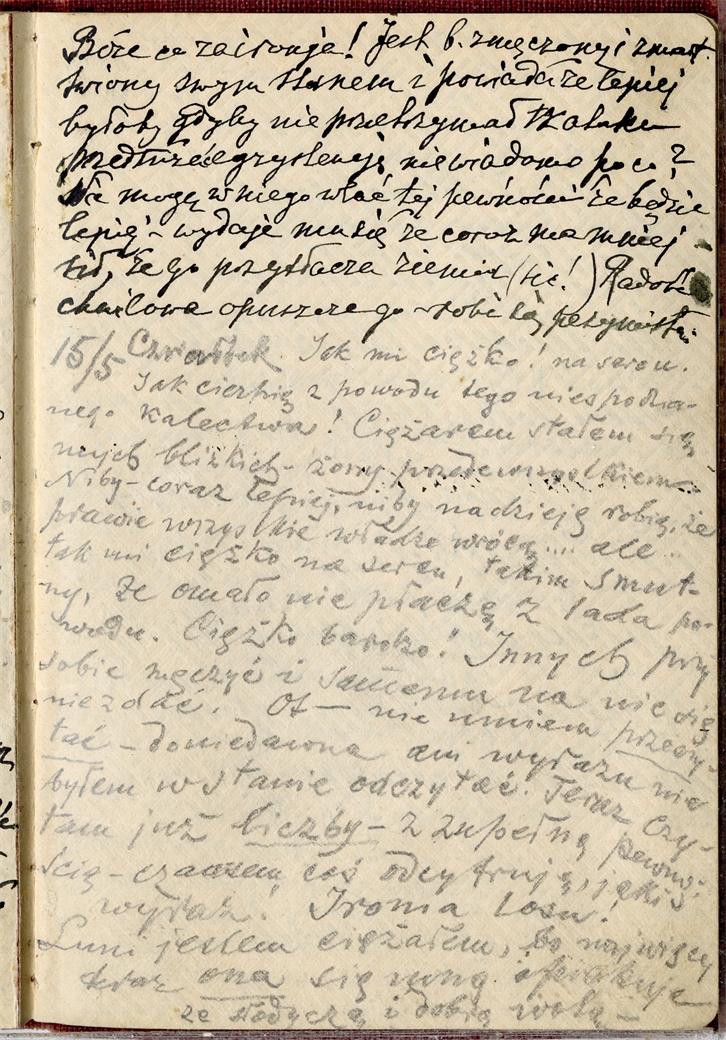 Boże co za ironja! Jest b. zmęczony i zmart-
wiony swym stanem i powiada że lepiej
byłoby gdyby nie przetrzymał ataku
przedłużać egzystencję niewiadomo po co?
Nie mogę w niego wlać tej pewności że będzie
lepiej – wydaje mu się że coraz ma mniej
sił, że go przytłacza ziemia (sic!) Radość
chwilowa opuszcza go robi się pesymistą.
15/5 Czwartek. Jak mi ciężko! na sercu.
Jak cierpię z powodu tego niespodzia-
nego kalectwa! Ciężarem stałem się
mych blizkich – żony przedewszystkiem.
Niby – coraz lepiej, niby nadzieję robią, że
prawie wszystkie władze wrócą.... ale...
tak mi ciężko na sercu, takim smut-
ny, że omało nie płaczę z lada po-
wodu. Ciężko bardzo! Innych przy
sobie męczyć i samemu na nic się
nie zdać. Ot – nie umiem przeczy-
tać – doniedawna ani wyrazu nie
byłem w stanie odczytać. Teraz czy-
tam już liczby – z zupełną pewno-
ścią – czasem coś odcyfruję, jakiś
wyraz! Ironia losu!
Luni jestem ciężarem, bo najwięcej
teraz ona się mną opiekuje
ze słodyczą i dobrą wolą –